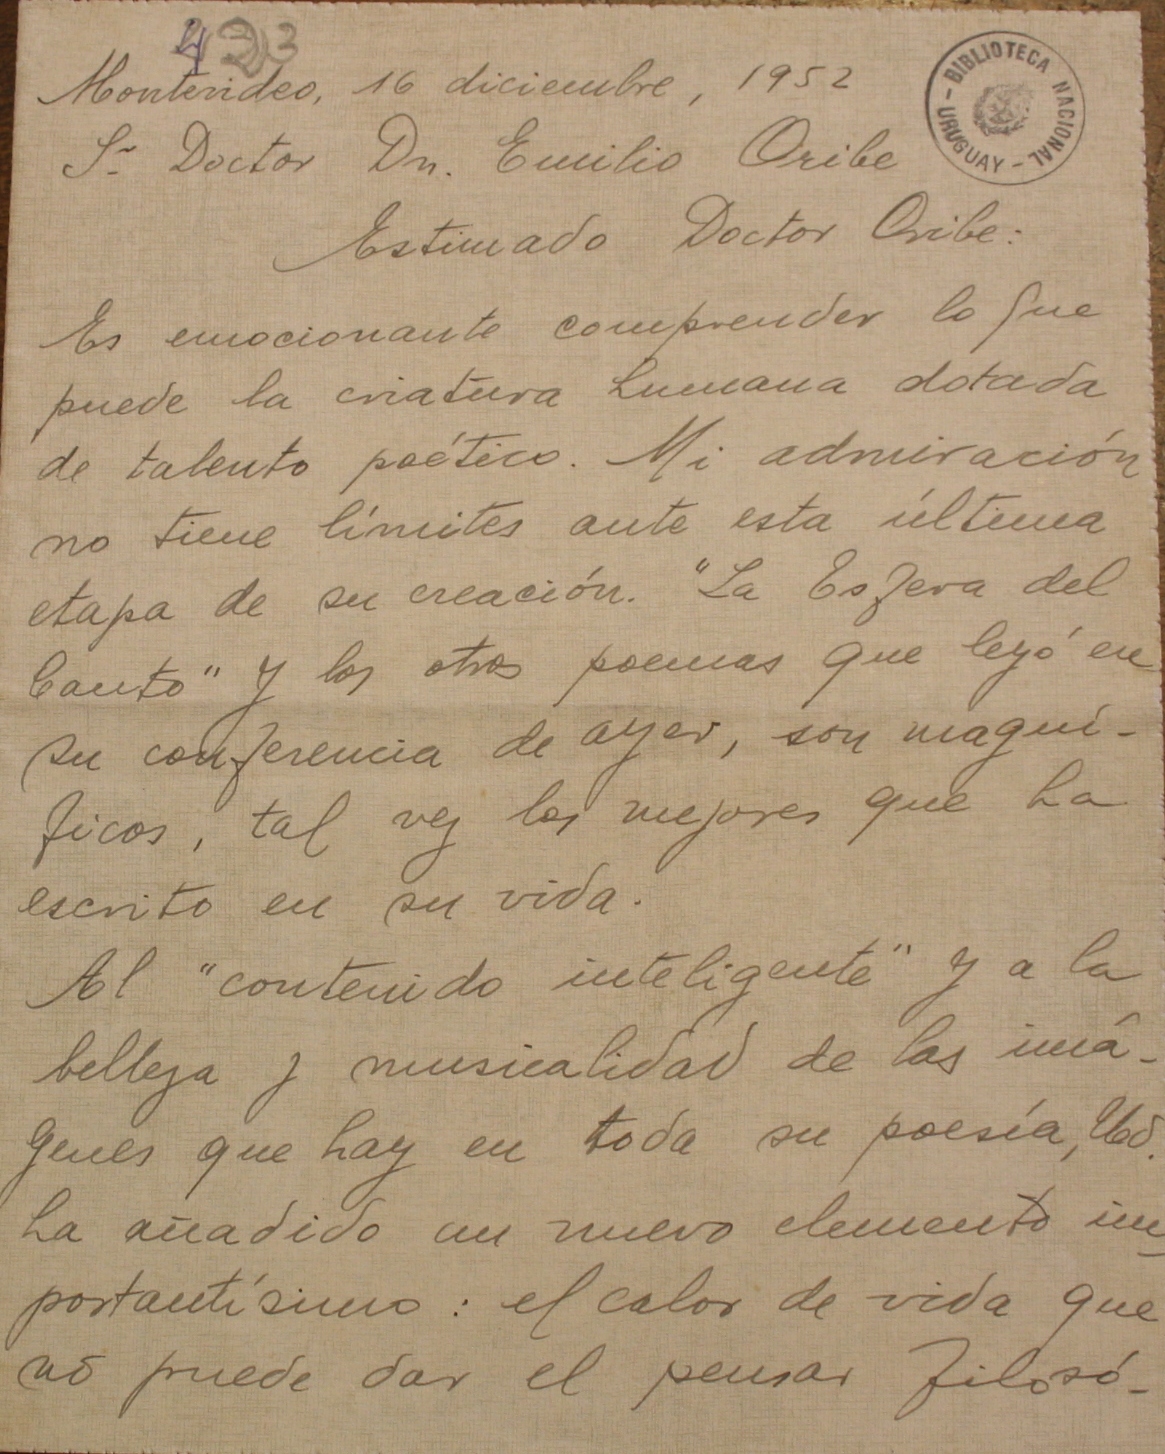 423
Montevideo, 16 diciembre, 1952
BIBLIOTECA NACIONAL - URUGUAY -
Sr Doctor Dn. Emilio Oribe
Estimado Doctor Oribe:
Es emocionante comprender lo que
puede la criatura humana dotada
de talento poético. Mi admiración
no tiene límites ante esta última
etapa de su creación. "La Esfera del
Canto" y los otros poemas que leyó en
su conferencia de ayer, son magní-
ficos, tal vez los mejores que ha
escrito en su vida.
Al "contenido inteligente" y a la
belleza y musicalidad de las imá-
genes que hay en toda su poesía, Ud.
ha añadido un nuevo elemento im-
portantísimo: el calor de vida que
no puede dar el pensar filosó-